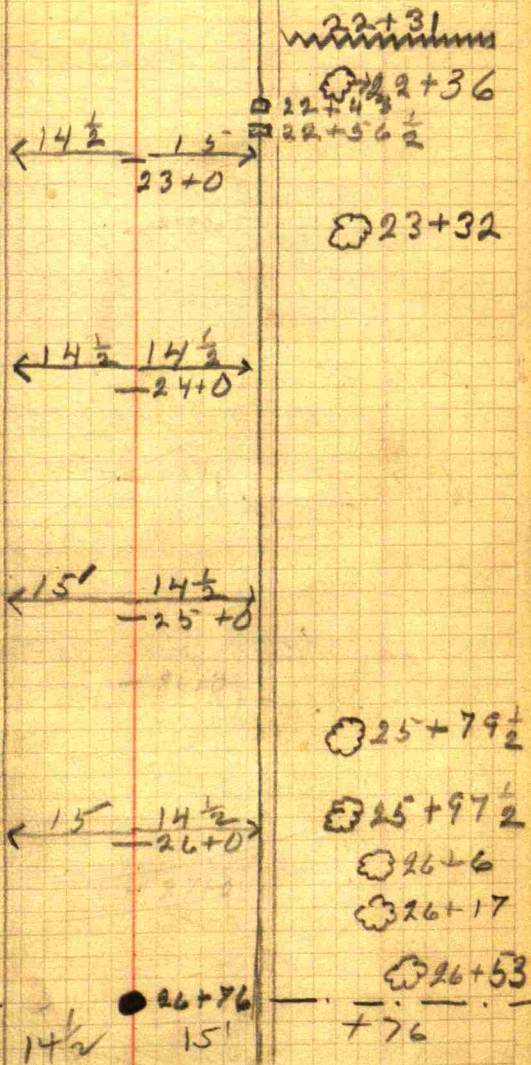 22+31
22+36
22+43
22+56 1/2
14 1/2 15
23+0
23+32
14 1/2 14 1/2
24+0
15' 14 1/2
25+0
25+79 1/2
25+97 1/2
15 14 1/2
26+0
26+6
26+17
26+53
26+76
14 1/2 15' +76